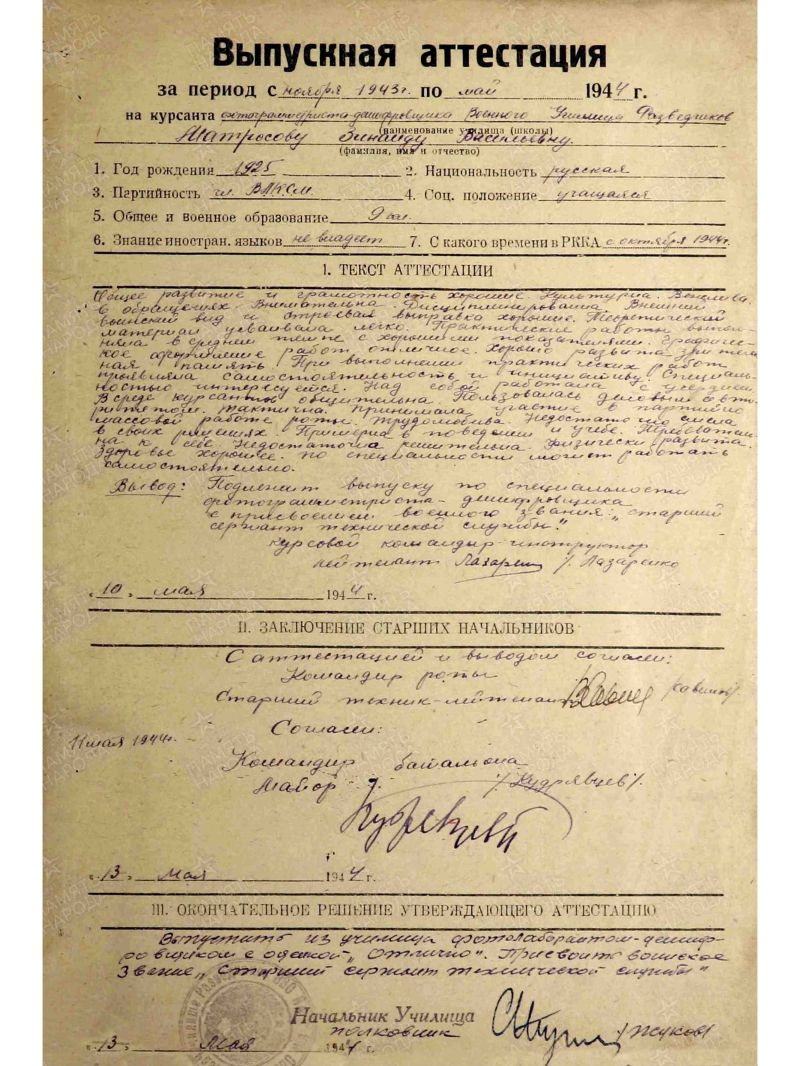 Выпускная аттестация
за период с ноября 1943г. по май 1944 г.
на курсанта фотограмметриста-дешифровщика Военного Училища Разведчиков
(наименование училища (школы)
Матросову Зинаиду Васильевну.
(фамилия, имя и отчество)
1. Год рождения 1925 2. Национальность русская
3. Партийность чл. ВЛКСМ 4. Соц. положение учащаяся
5. Общее и военное образование 9 кл.
6. Знание иностран. языков не владеет 7. С какого времени в РККА с октября 1944г.
I. ТЕКСТ АТТЕСТАЦИИ
Общее развитие и грамотность хорошие. Культурна. Вежлива
в обращениях. Внимательна. Дисциплинирована. Внешний
воинский вид и строевая выправка хорошие. Теоретический
материал усваивала легко. Практические работы выпол-
няла в среднем темпе с хорошими показателями. Графичес-
кое оформление работ отличное. Хорошо развита зритель-
ная память. При выполнении практических работ
проявляла самостоятельность и инициативу. Специаль-
ностью интересуется. Над собой работала с усердием.
В среде курсантов общительна. Пользовалась деловым авто-
ритетом. Тактична. Принимала участие в партийно
массовой работе роты. Трудолюбива. Недостаточно смела
в своих решениях. Примерна в поведении и учебе. Требователь-
на к себе. Недостаточно решительна. Физически развита.
Здоровье хорошее. По специальности может работать
самостоятельно.
Вывод: Подлежит выпуску по специальности
фотограмметриста-дешифровщика
с присвоением военного звания: „старший
сержант технической службы."
Курсовой командир-инструктор
лейтенант Лазарен /. Лазаренко
„10„ мая 1944 г.
II. ЗАКЛЮЧЕНИЕ СТАРШИХ НАЧАЛЬНИКОВ
С аттестацией и выводом согласен:
Командир роты
Старший техник-лейтенант
11 мая 1944г. Согласен:
Командир батальона
Майор /Кудрявцев/.
„13„ мая 1944 г.
III. ОКОНЧАТЕЛЬНОЕ РЕШЕНИЕ УТВЕРЖДАЮЩЕГО АТТЕСТАЦИЮ
Выпустить из училища фотолаборантом-дешиф-
ровщиком с оценкой „Отлично". Присвоить воинское
звание „Старший сержант технической службы"
Начальник Училища
полковник /Жуков/
„13„ мая 1944 г.
ПАМЯТЬ НАРОДА